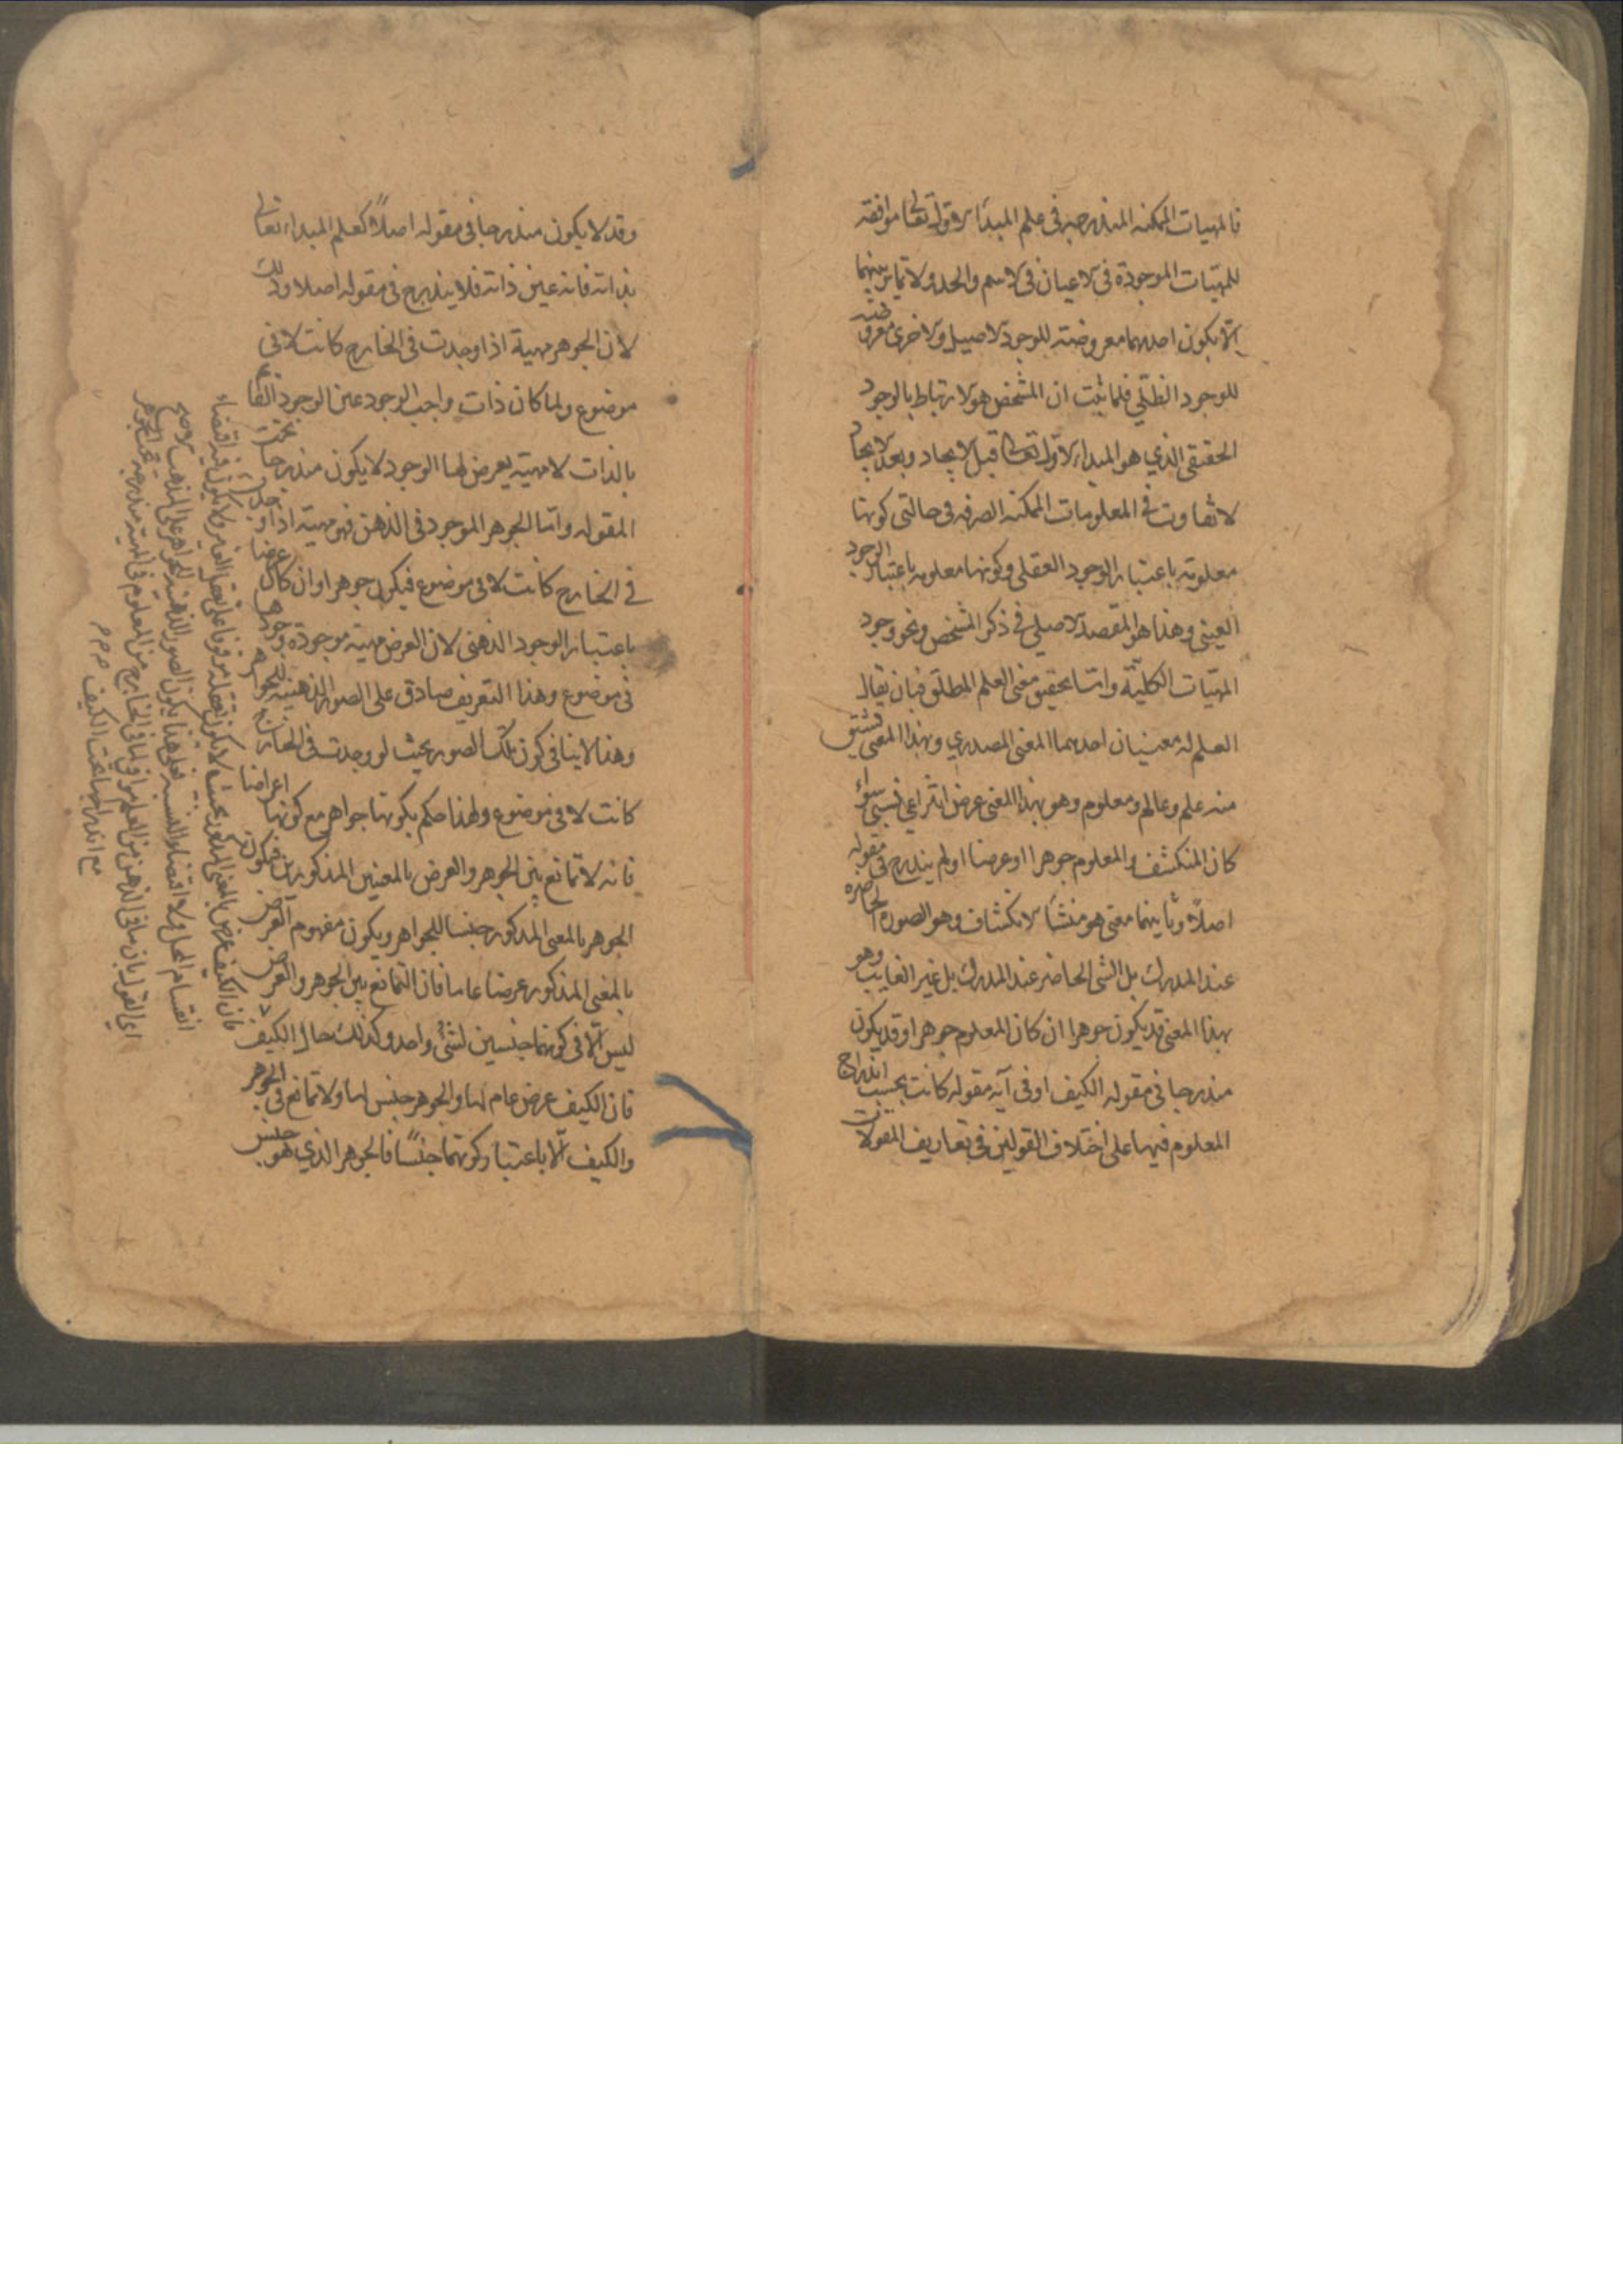 فالمهيات الممكنه المندرجه فى علم المبدأ الاول تعالى موافقه
للمهيات الموجودة فى الاعيان فى الاسم والحد ولا تمايز بينهما
الا بكون احدهما معروضته للوجود الاصيل والاخرى معروضته
للوجود الظلّي فلما ثبت ان التشخص هو الارتباط بالوجود
الحقيقى الذي هو المبداء الاول تعالى قبل الايجاد وبعد الايجاد
لا تفاوت فى المعلومات الممكنه الصرفه فى حالتى كونها
معلومته باعتبار الوجود العقلى وكونها معلومه باعتبار الوجود
العينى وهذا هو المقصد الاصيلى فى ذكر التشخص ونحو وجود
المهيّات الكليّة واما تحقيق معنى العلم المطلق فبان يقال
العلم له معنيان احدهما المعنى المصدري وبهذا المعنى تشتق
منه علم وعالم ومعلوم وهو بهذا المعنى عرض انتزاعي نسبى سواء
كان المنكشف والمعلوم جوهرا او عرضا او لم يندرج فى مقوله
اصلاً وثانيهما معنى هو منشأ لانكشاف وهو الصورة الحاضره
عند المدرك بل الشى الحاضر عند المدرك بل غير الغايب وهو
بهذا المعنى قد يكون جوهرا ان كان المعلوم جوهرا وقد يكون
مندرجا فى مقوله الكيف او فى آيه مقوله كانت بحسب اندراج
المعلوم فيها على اختلاف القولين فى تعاريف المقولات
وقد لا يكون مندرجا فى مقوله اصلاً كعلم المبداء تعالى
بذاته فانه عين ذاته فلا يندرج فى مقوله اصلا وذلك
لان الجوهر مهية اذا وجدت فى الخارج كانت لا فى
موضوع ولما كان ذات واجب الوجود عين الوجود القائم
بالذات لا مهيته يعرض لها الوجود لا يكون مندرجا تحت
المقوله واما الجوهر الموجود فى الذهن فهو مهية اذا وجدت
فى الخارج كانت لا فى موضوع فيكون جوهرا وان كان عرضا
باعتبار الوجود الذهنى لان العرض مهيته موجودة
فى موضوع وهذا التعريف صادق على الصور الذهنيته للجواهر
وهذا لا ينافى كون تلك الصور بحيث لو وجدت فى الخارج
كانت لا فى موضوع ولهذا حكم بكونها جواهر مع كونها اعراضا
فانه لا تمانع بين الجوهر والعرض بالمعنيين المذكورين فيكون
الجوهر بالمعنى المذكور جنسا للجواهر ويكون مفهوم العرض
بالمعنى المذكور عرضا عاما فان التمانع بين الجوهر والعرض
ليس الّا فى كونهما جنسين لشئ واحد وكذلك حال الكيف
فان الكيف عرض عام لها والجوهر جنس لها ولا تمانع فى الجوهر
والكيف الّا باعتبار كونهما جنسًا فالجوهر الذي هو جنس
فان الكيف عرض بالمعنى المذكور بحيث لا يكون تعقله موقوفا على تعقل الغير ولا يكون فيه اقتضاء
انقسام المحل ولا اقتضاء النسبه فعلى هذا يكون الصور الذهنيه للجواهر على المذهب الاصح
اي القول بان ما فى الذهن من العلم موافق لما فى الخارج من المعلوم فى المهية مندرجه تحت الجوهر
مع اندراجها تحت الكيف م م م